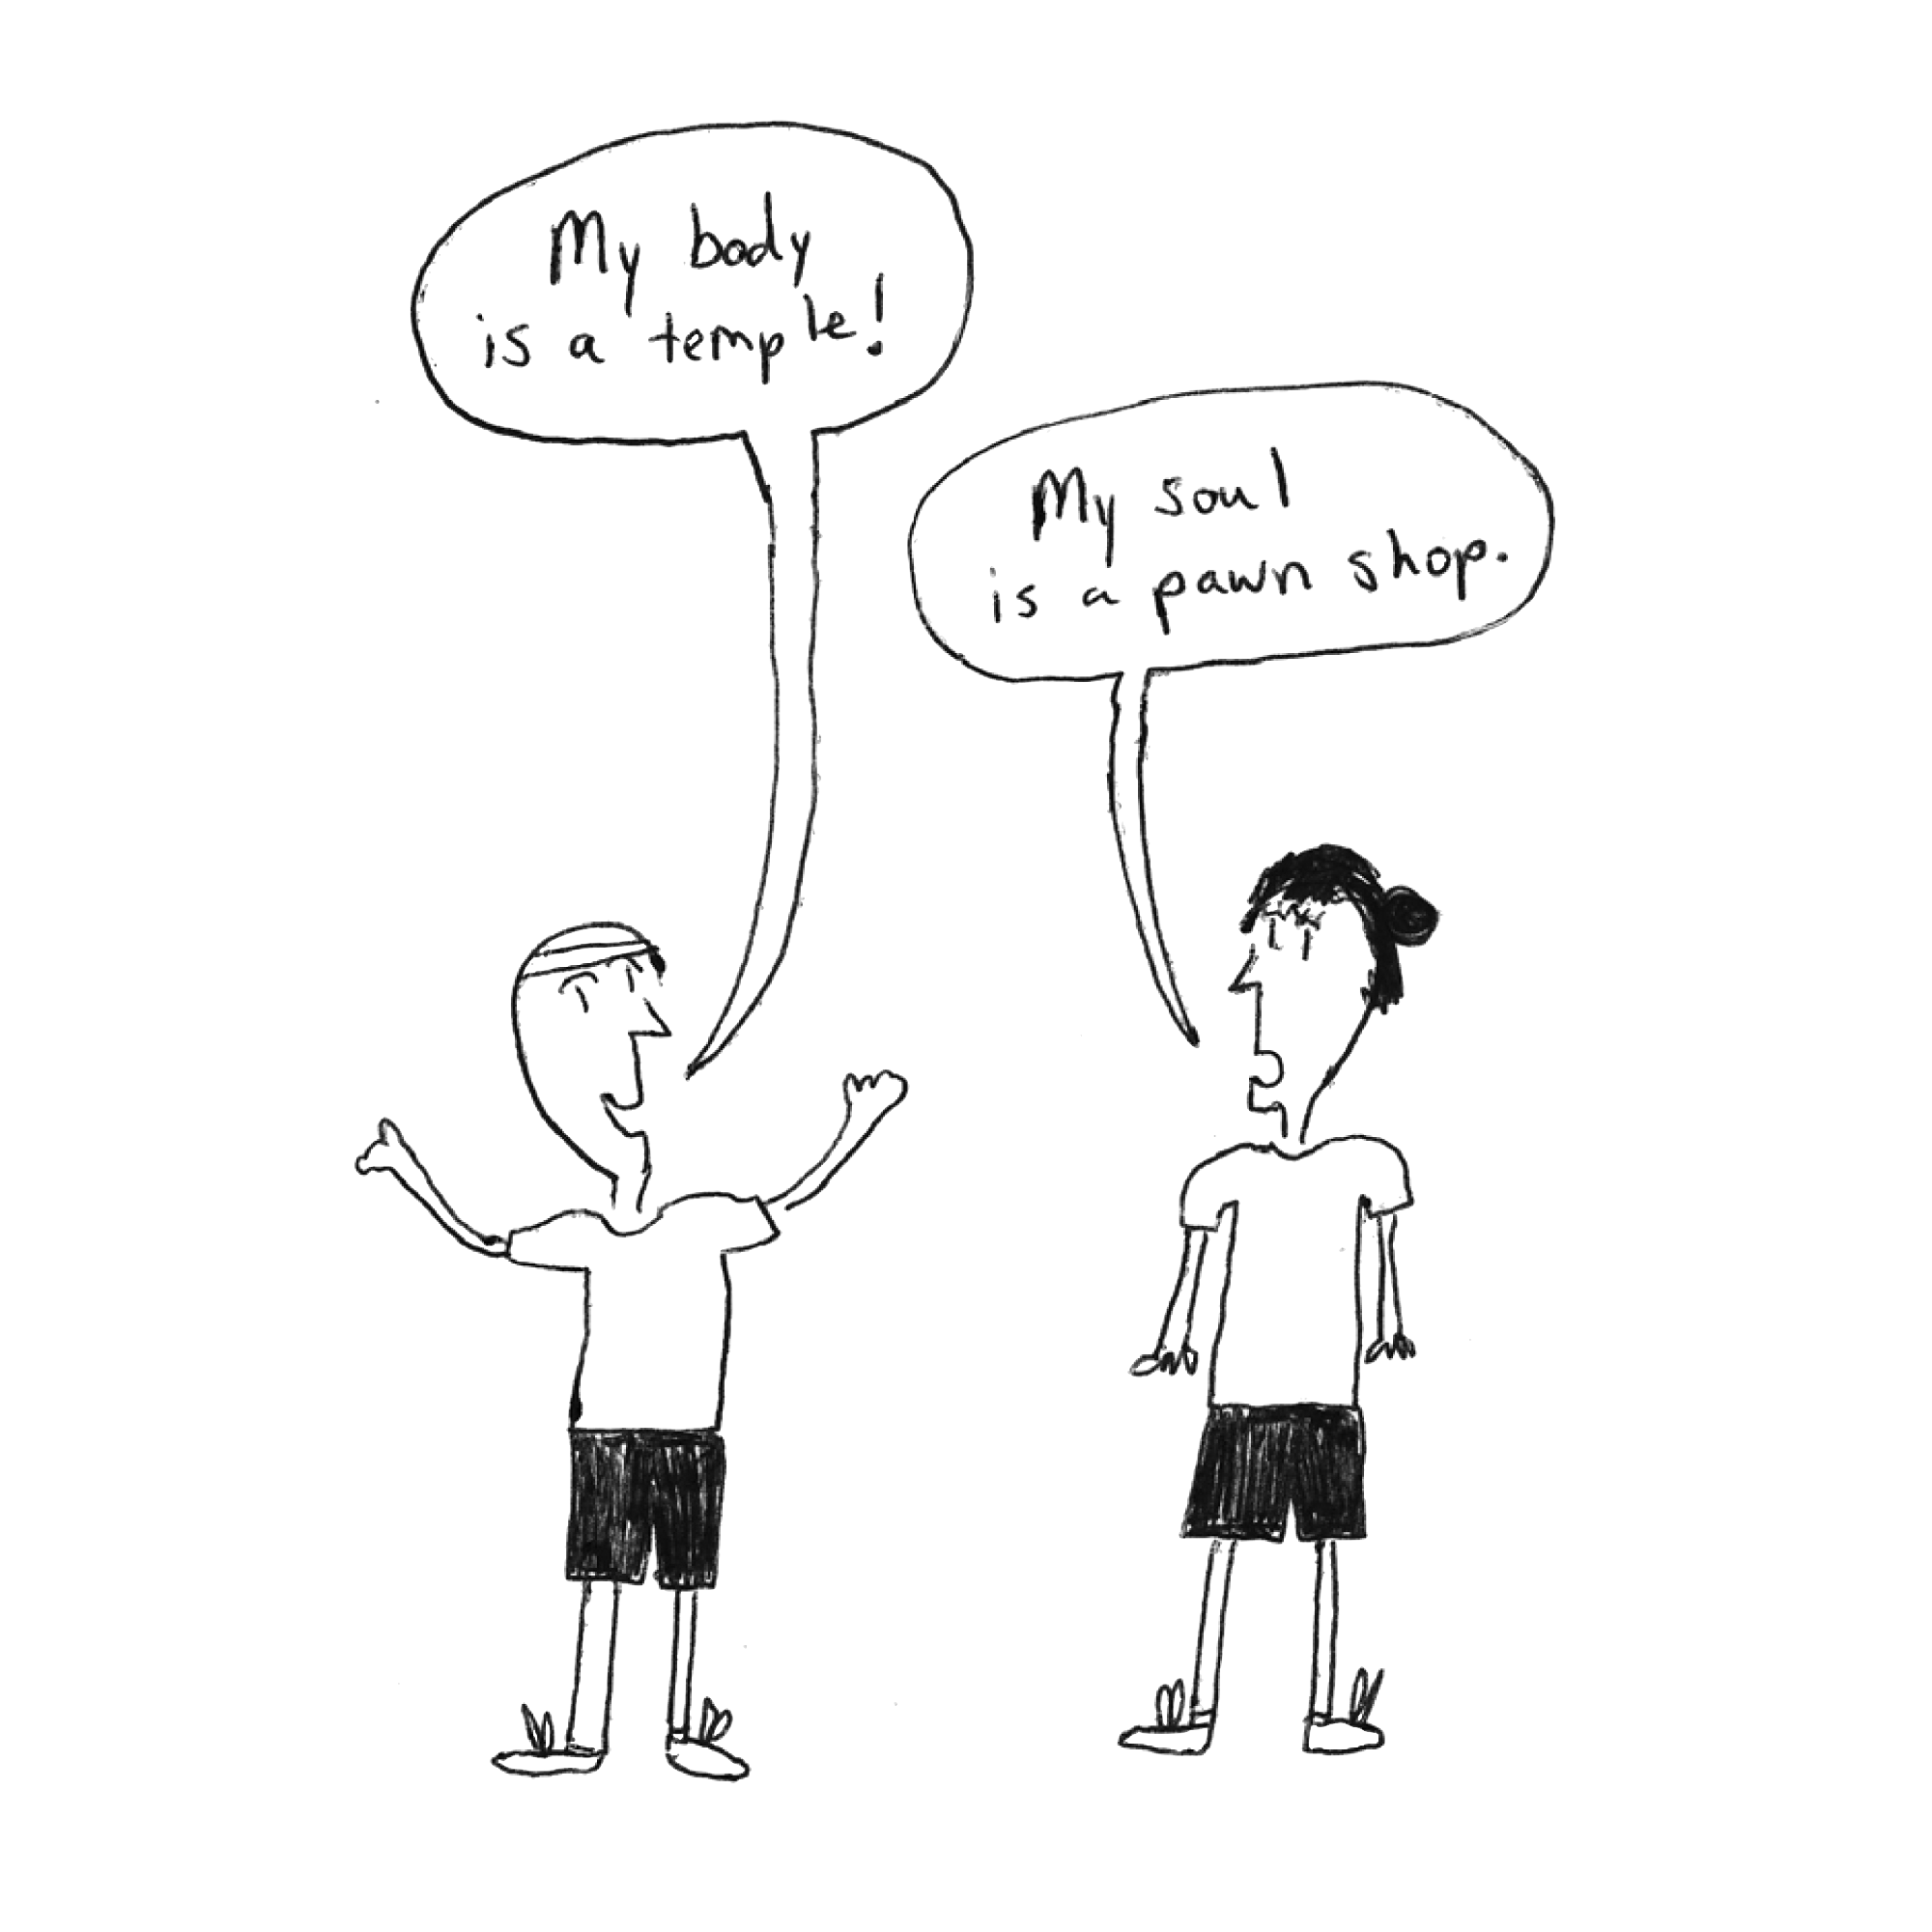 My body
is a temple!
My soul
is a pawn shop.